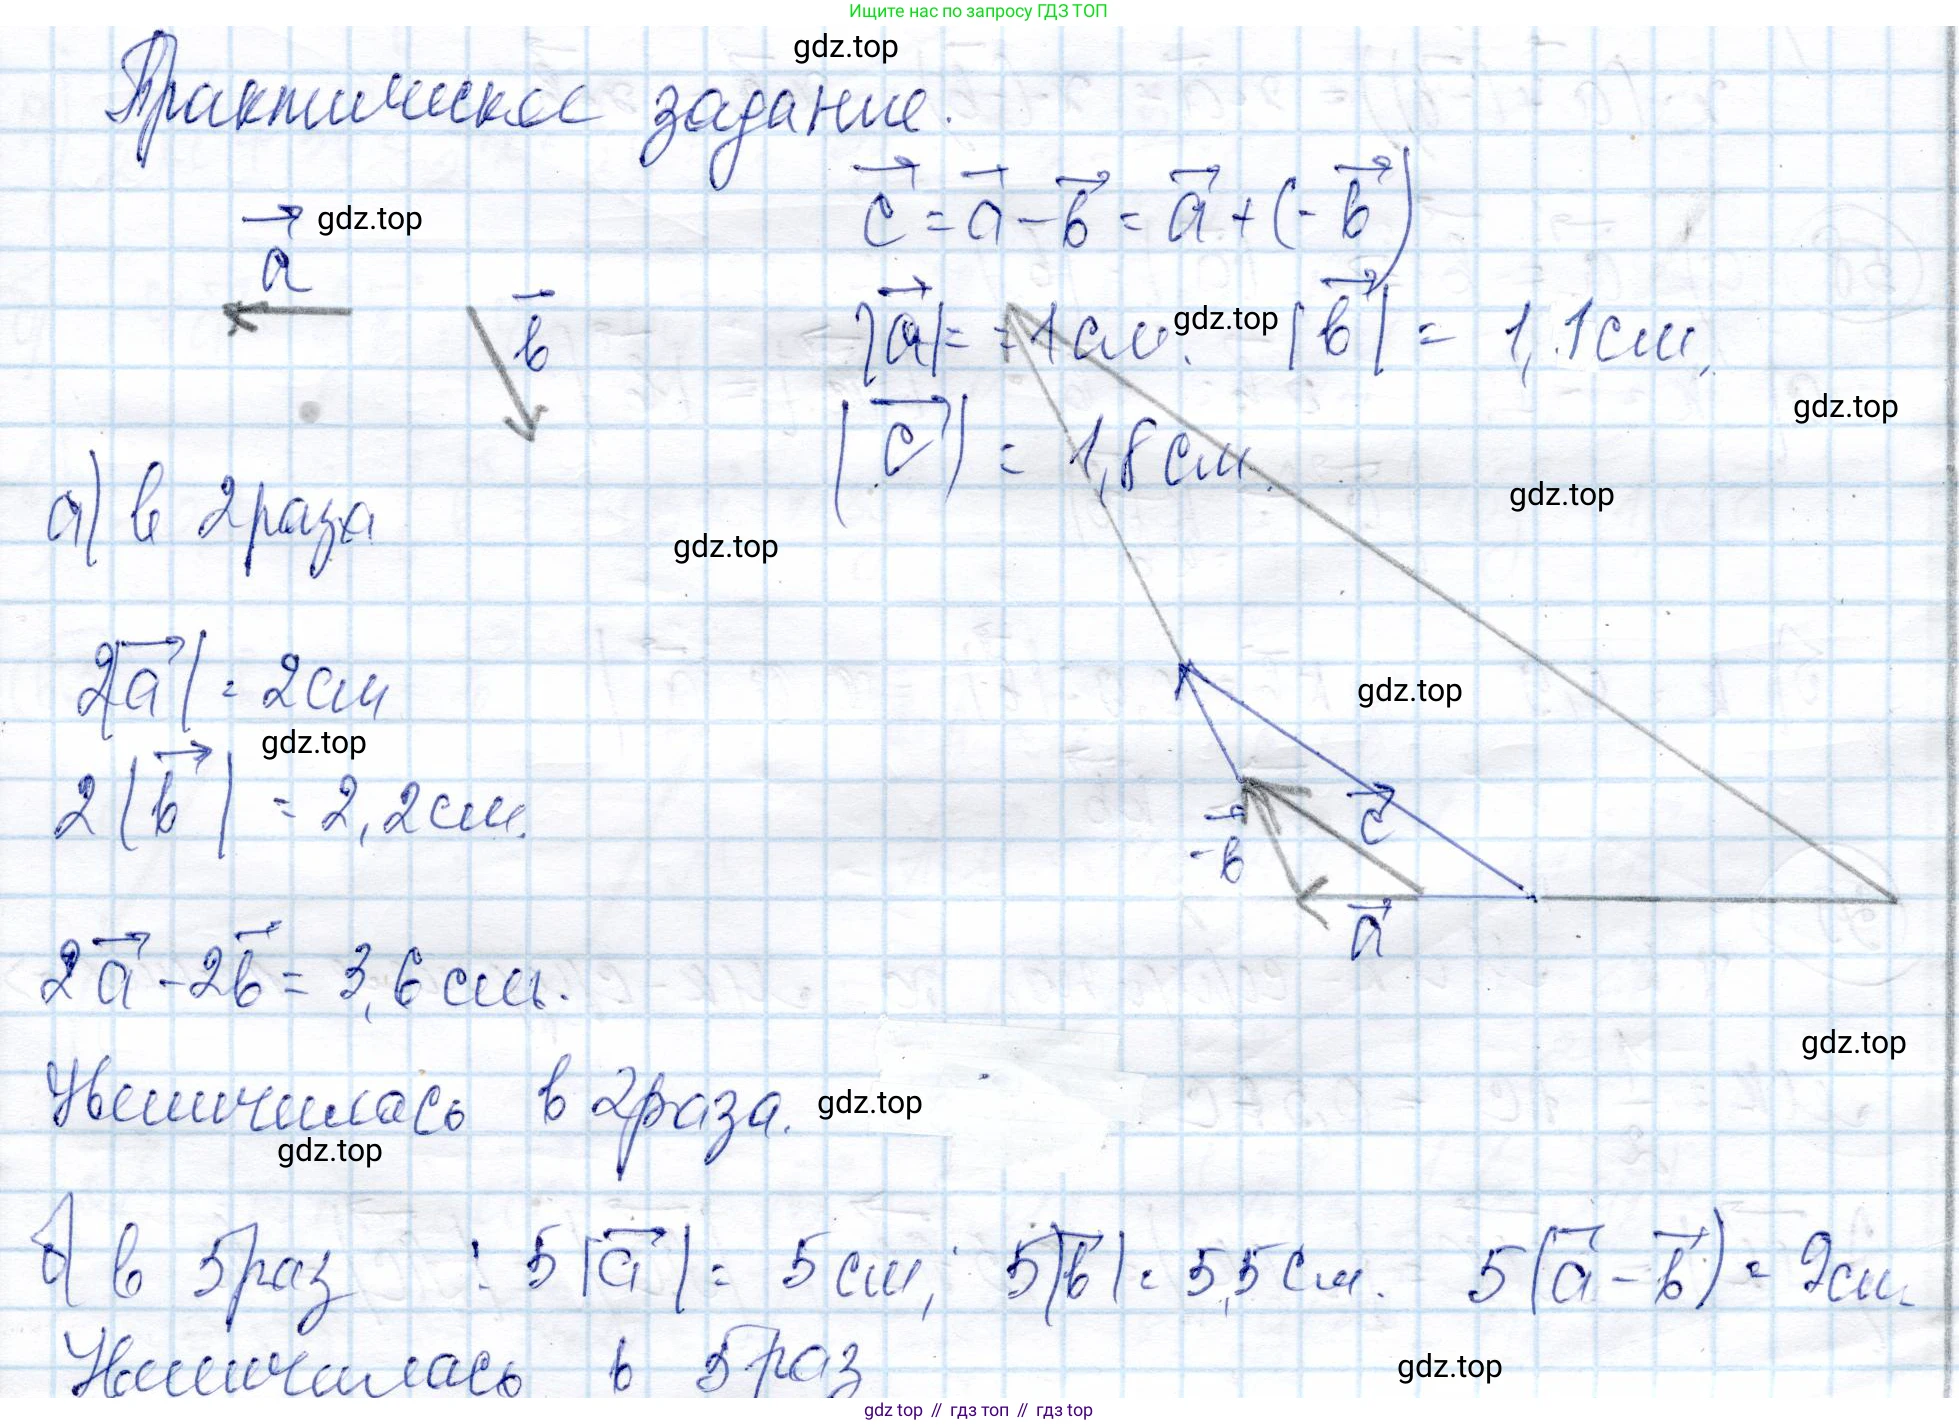 Ищите нас по запросу ГДЗ ТОП
gdz.top
Практическое задание.
c = a - b = a + (- b)
a gdz.top
b
|a| = = 1 см. gdz.top |b| = 1,1 см,
gdz.top
|c| = 1,8 см.
gdz.top
а) в 2 раза
gdz.top
2|a| = 2 см
gdz.top
gdz.top
2|b| = 2,2 см.
c
-b
a
2a - 2b = 3,6 см.
gdz.top
Увеличилась в 2 раза. gdz.top
gdz.top
б) в 5 раз : 5|a| = 5 см; 5|b| = 5,5 см. 5(a - b) = 9 см.
Увеличилась в 5 раз
gdz.top
gdz top // гдз топ // гдз top